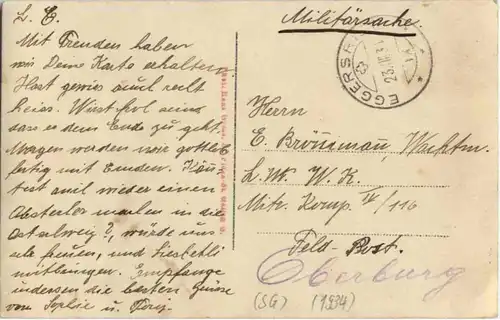 L. E.
Mit Freuden haben
wir Deine Karte erhalten
Hast gewis auch recht
heiss. Wirst froh sein
dass es dem Ende zu geht
Morgen werden wir gottlob
fertig mit Emden. Kön
test auch wieder einen
Abstecher machen in die
Ostschweiz?, würde uns
sehr freuen, und
mitbringen. Empfange
indessen die besten Grüsse
von Sophie u.
Militärsache.
EGGERSR
Herrn
E. Brönnimann, Wachtm.
L. W. K.
Mitr. Komp. IV/116
Feld-Post.
Oberburg
(SG) (1934)